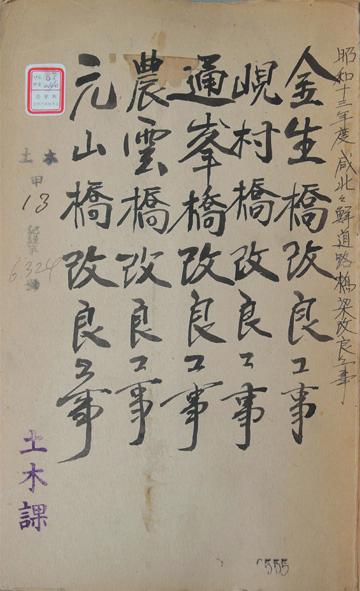 昭和十三年度咸北々鮮道路橋梁改良工事
金生橋改良工事
峴村橋改良工事
通峯橋改良工事
農雲橋改良工事
元山橋改良工事
土木
甲
13
6324
土木課
555